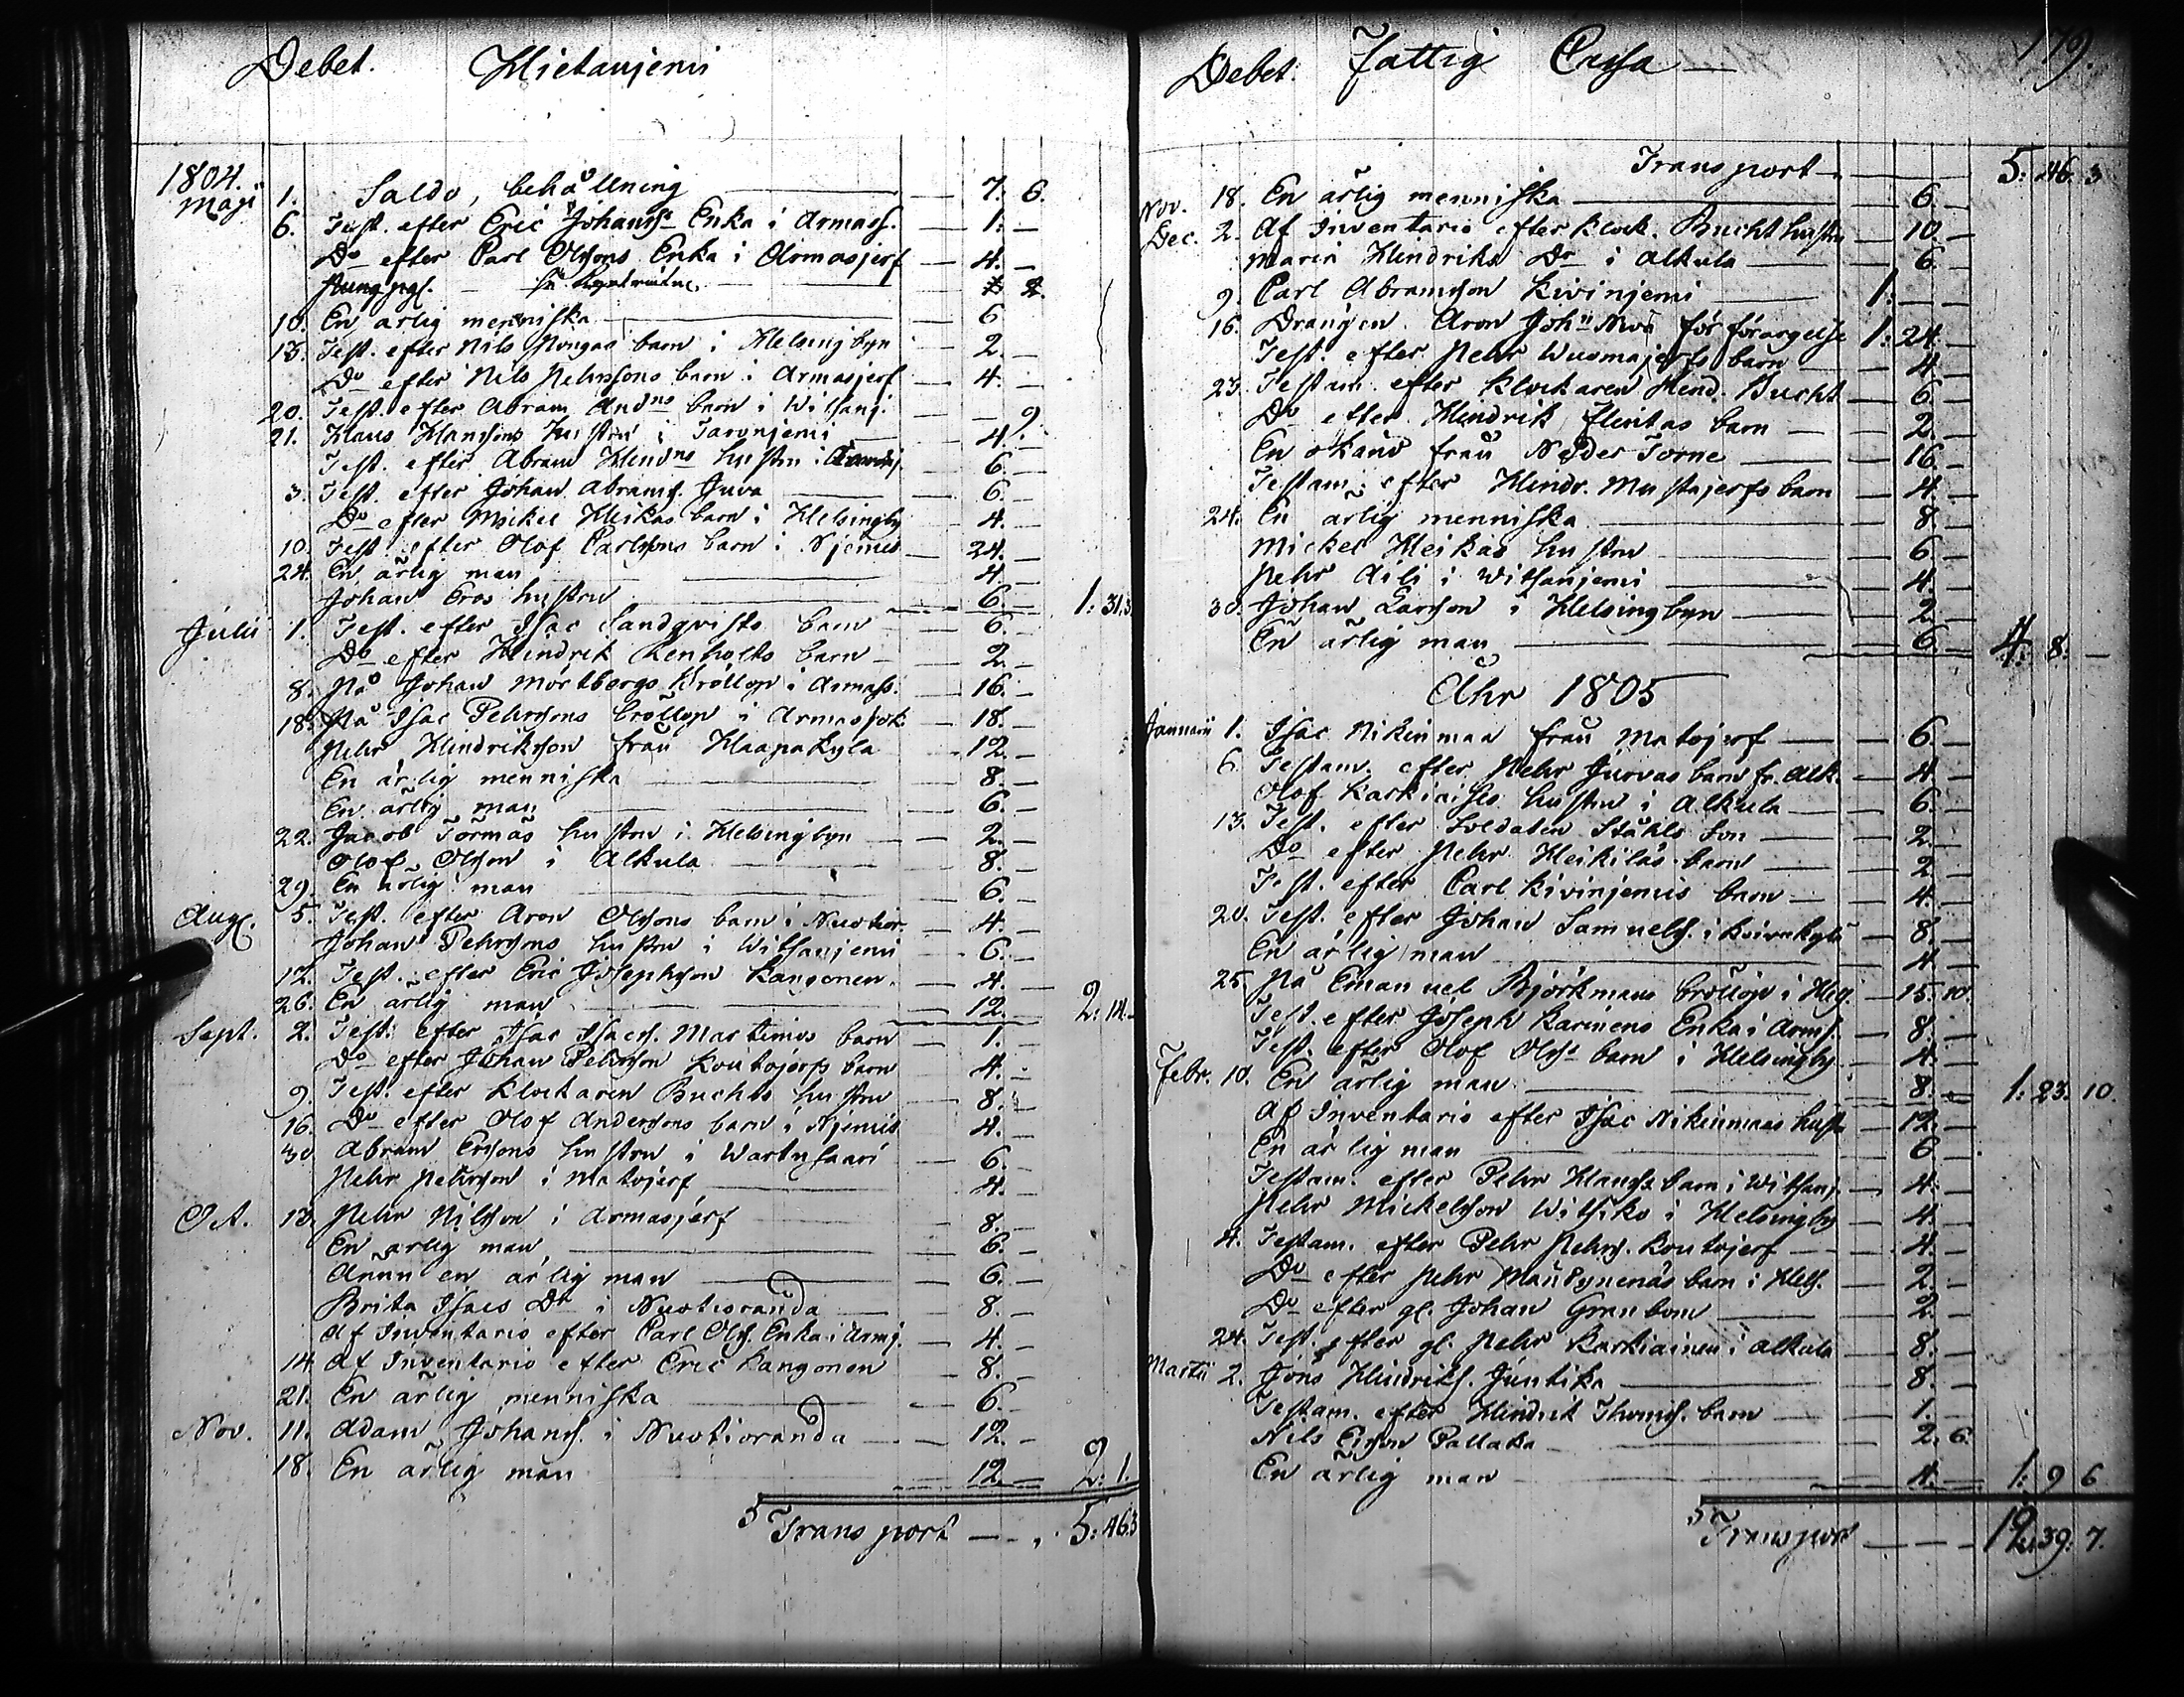 Debet. Hietaniemi
1804.
Maji 1. Saldo, behållning 7. 6.
6. Test. efter Eric Johanss. Enka i Armass. 1. —
Do efter Carl Olssons Enka i Armasjerf 4. —
10. En ärlig menniska 6
13. Test. efter Nils barn i Helsingbyn 2. —
Do efter Nils Pehrssons barn i Armasjerf 4. —
20. Test. efter Abram Andns barn i Witsanj. — 9.
21. Klaus Hanssons hustru i Taronjemi 4. —
Test. efter Abram Hendns hustru i 6. —
3. Test. efter Johan Abramss. Juva 6. —
Do efter Mickel Heikas barn i Helsingby 4. —
10. Test. efter Olof Carlssons barn i Njemis 24. —
24. En ärlig man 4 —
Johan Eros hustru 6. — 1: 31. 3
Julii 1. Test. efter Isac Sandqvists barn 6. —
Do efter Hendrik Renholts barn 2. —
8. På Johan Mörtbergs bröllop i Armass. 16. —
18. På Isac Pehrssons bröllop i Armasjok 18. —
Pehr Hindriksson från Haapakylä 12. —
En ärlig menniska 8. —
En ärlig man 6. —
22. Jacob Törmäs hustru i Helsingbyn 2. —
Olof Olsson i Alkula 8. —
29. En ärlig man 6. —
Aug. 5. Test. efter Aron Olssons barn i Nuotior. 4. —
Johan Pehrssons hustru i Witsanjemi 6. —
12. Test. efter Eric Josephsson Kangonen 4. —
26. En ärlig man 12. — 2: 14. —
Sept. 2. Test. efter Isac Isacss. Martimos barn 1. —
Do efter Johan Pehrsson Koutojerfs barn 4. —
9. Test. efter Klockaren Buchts hustru 8. —
16. Do efter Olof Anderssons barn i Njemis 4. —
30 Abram Ersons hustru i Wartusaari 6. —
Pehr Pehrsson i Matojerf 4. —
Oct. 13. Pehr Nilsson i Armasjerf 8. —
En ärlig man 6. —
Ännu en ärlig man 6. —
Brita Isacs Dr i Nuotioranda 8. —
Af Inventario efter Carl Olss. Enka i Armsj. 4. —
14 Af Inventario efter Eric Kangonen 8. —
21. En ärlig menniska 6. —
Nov. 11. Adam Johanss. i Nuotioranda 12. —
18. En ärlig man 12. — 2: 1. 9
Transport 5: 46. 3
Debet. Fattig Cassa 179.
Transport 5: 46. 3
Nov. 18. En ärlig menniska 6. —
Dec. 2. Af Inventario efter Klock. Bucht hustru 10. —
Maria Hindriks Dr i Alkula 6. —
9. Carl Abramsson Kivinjemi 1: — —
16. Drängen Aron Johns för förargelse 1: 24. —
Test. efter Pehr Wuomajerfs barn 4 —
23. Testam. efter Klockaren Hend. Bucht 6. —
Do efter Hindrik barn 2. —
En okänd från Neder Torne 16. —
Testam. efter Hindr. Mustajerfs barn 4. —
24. En ärlig menniska 8. —
Mickel Heikas hustru 6. —
Pehr Aili i Witsanjemi 4. —
30. Johan Larsson i Helsingbyn 2. —
En ärlig man 6. — 4: 8. —
Åhr 1805
Januarii 1. Isac Nikinmaa från Matojerf 6. —
6. Testam. efter Pehr Jurvas barn fr. Alk. 4. —
Olof Karkiaises hustru i Alkula 6. —
13. Test. efter Soldaten Ståhls Son 2. —
Do efter Pehr Heikiläs barn 2. —
Test. efter Carl Kivinjemis barn 4. —
20. Test. efter Johan Samuelss. i Koivukylä 8. —
En ärlig man 4. —
25. På Emanuel Björkmans bröllop i Hels. 15. 10.
Test. efter Joseph Karinens Enka i Armsj. 8. —
Test. efter Olof Olss. barn i Helsingby 4. —
Febr. 10. En ärlig man 8. — 1: 23. 10.
Af Inventario efter Isac Nikinmaas hustr. 12. —
En ärlig man 6. —
Testam. efter Pehr Hanss. barn i Witsanj. 4. —
Pehr Mickelsson Witsiko i Helsingby 4. —
Testam. efter Pehr Pehrs. Koutojerf 4. —
Do efter Pehr barn i Hels. 2. —
Do efter gl. Johan Granbom 2. —
24. Test. efter gl. Pehr Karkiainen i Alkula 8. —
Martii 2. Jöns Hindrikss. Juntika 8. —
Testam. efter Hindrik Thomss. barn 1. —
Nils Ersson Pallaka 2. 6.
En ärlig man 4. — 1: 9 6
Transport 12: 39: 7.